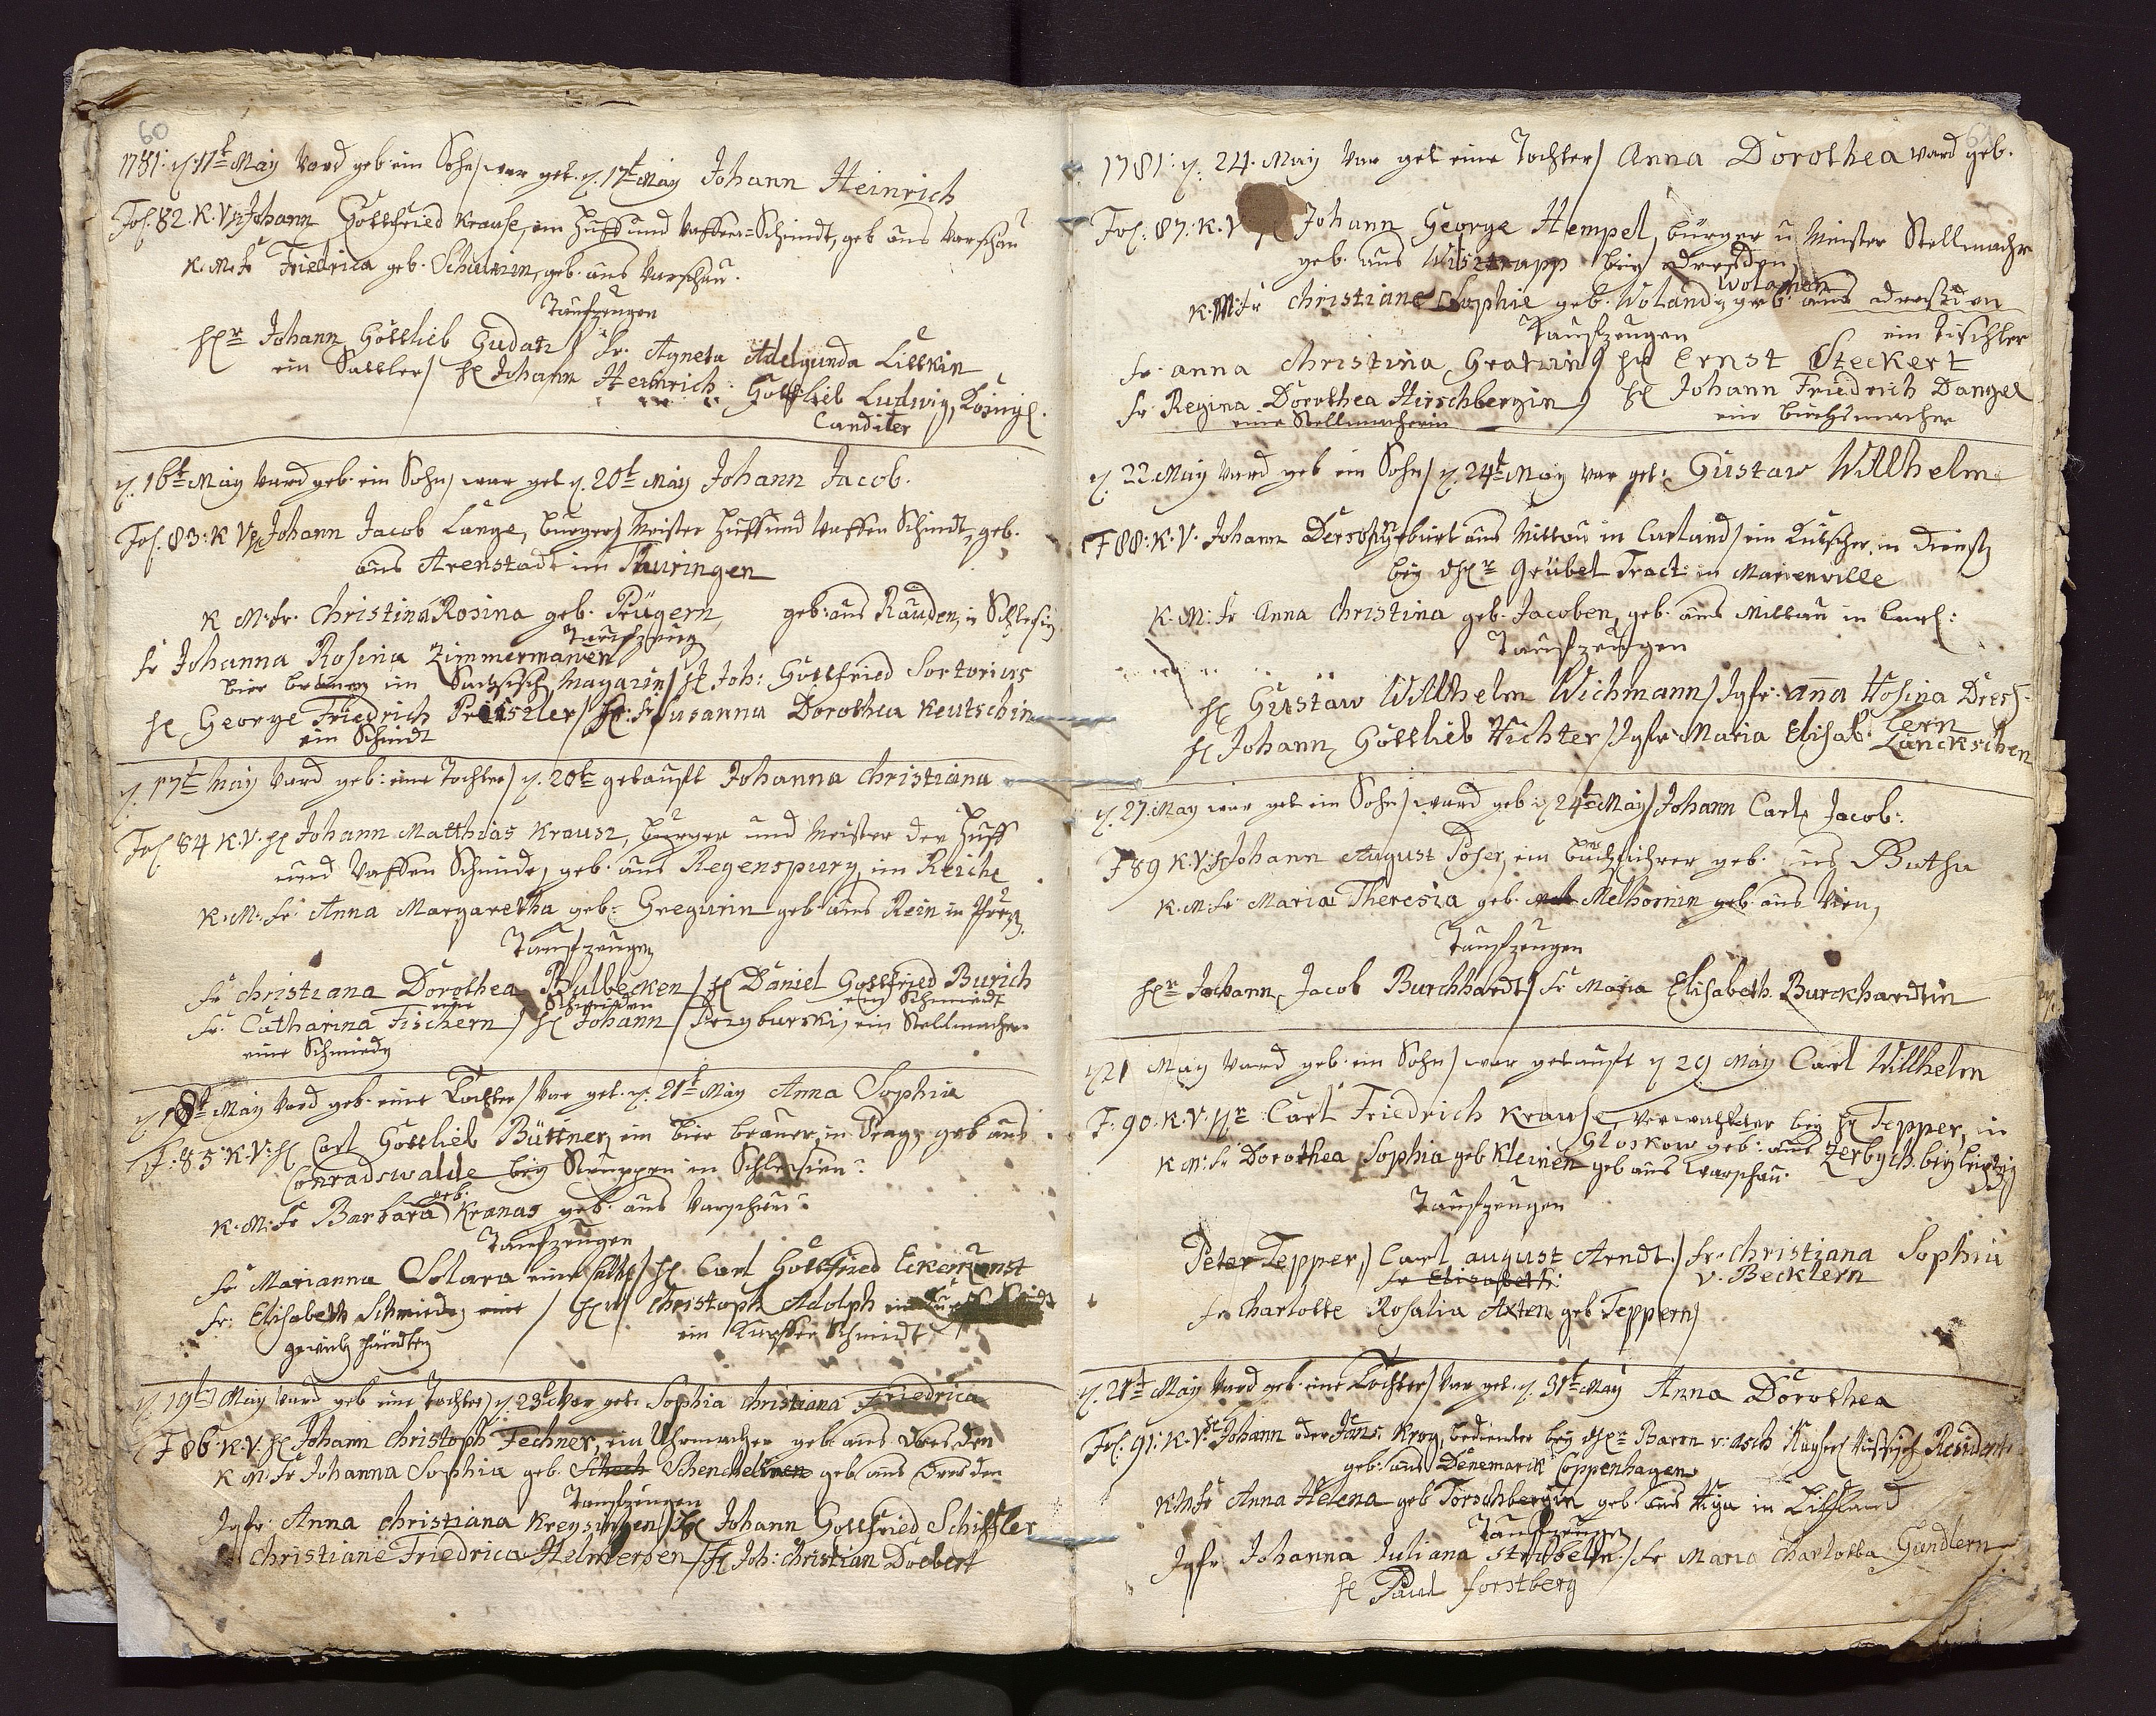 60
1781: d. 11t May Ward geb: ein Sohn / war get. d. 17t May Johann Heinrich
Fol. 82. K. V. H Johann Gottfried Krause, ein Huff und Waffen=Schmidt, geb aus Warschau
K. M. Fr Friedrica geb. Schurin, geb. aus Warschau.
Taufzeugen
Hr Johann Gottlieb Gudatz / Fr. Agneta Adelgunda Littkin
ein Sattler / H Johann Heinrich Gottlieb Ludwig, Königl.
Canditer
d. 16t May Ward geb. ein Sohn / war get d. 20t May Johann Jacob.
Fol. 83: K V H Johann Jacob Lange, Burger / Meister Huff und Waffen Schmidt, geb.
aus Arenstadt im Thuringen
K M: Fr. Christina Rosina geb. Prügern geb: aus Rauden, in Schlesin
Taufzeug
Fr Johanna Rosina Zimmermanen
bier brauerin im Sachsisch Magazin / H Joh: Gottfried Sortorius
H George Friedrich Preiszler / Fr Susanna Dorothea Keutschin
ein Schmidt
d. 17t May Ward geb: eine Tochter / d. 20t getauft Johanna Christiana
Fol 84 K. V. H Johann Matthias Krausz, Burger und Meister der Huff
und Waffen Schmide, geb. aus Regenspurg, im Reiche
K. M. Fr: Anna Margaretha geb: Gregurin geb aus Rein in
Taufzeugen
Fr Christiana Dorothea Bulbecken / H Daniel Gottfried Burich
eine Schmieden ein Schmiedt
Fr. Catharina Fischern / H Johann Przyburski, ein Stellmacher
eine Schmiedn
d. 18t May Ward geb. eine Tochter / War get. d. 21t May Anna Sophia
F: 85: K. V: H Carl Gottlieb Büttner, ein bier brauer, in Prag, geb aus
Conradswalde bey in Schlesien.
K. M: Fr Barbara geb. Kranas geb: aus Warschau.
Taufzeugen
Fr Marianna Solara eine / H Carl Gottfried Eikenkunst
Fr: Elisabeth Schmieden eine / Hr Christoph Adolph
gewürtz händlen ein Kupffer Schmidt
d. 19t May Ward geb eine Tochter / d. 23t War get: Sophia Christiana Friedrica
F 86: K. V. H Johann Christoph Fechner, ein Uhrmacher geb aus Dresden
K M: Fr Johanna Sophia geb. Schenckelinen geb aus Dresden
Taufzeugen
Jgfr: Anna Christiana Kreysingen / H Johann Gottfried Schiffler
Christiane Friedrica Helmersen / H Joh: Christian Doebert
61
1781: d. 24. May War get eine Tochter / Anna Dorothea Ward geb.
Fol: 87: K. V H Johann George Hempel, bürger u Meister Stellmacher
geb. aus bey Dresden
Wolanden
K. M: Fr Christiane Sophie geb. Woland geb: aus Dresden
Taufzeugen ein Tischler
Fr: Anna Christina Gratwin / Hr Ernst Steckert
Fr Regina Dorothea Hirschbergin / H Johann Friedrich Dangel
eine Stellmacherin ein buchsmacher
d. 22. May Ward geb ein Sohn / d. 24t May War get: Gustav Willhelm
F 88: K. V. Johann geburt aus Mittau in Curland / ein Kutscher, in Dienst
bey Hr Grübel Tract: in Marienville
K. M: Fr Anna Christina geb. Jacoben, geb: aus Mittau in Curl:
Taufzeugen
H Gustav Willhelm Wichmann / Jgfr: Anna Rosina Dresz-
lern
H Johann Gottlieb Richter / Jgfr Maria Elisab. Lanckschen
d. 27. May war get ein Sohn / ward geb: d 24t May / Johann Carl Jacob:
F 89 K. V: H Johann August Poser, ein geb. aus Gutha
K. M Fr Maria Theresia geb. Melhornin geb: aus Wien
Taufzeugen
Hr Johann Jacob Burchhardt / Fr Maria Elisabeth Burckhardtin
d 21 May Ward geb: ein Sohn / war getauft d 29 May Carl Willhelm
F: 90. K. V. Hr Carl Friedrich Krause, Verwalter bey H Tepper, in
Gloskow geb: aus bey Leipzig
K M: Fr Dorothea Sophia geb Kleinen geb aus Warschau.
Taufzeugen
Peter Tepper, / Carl August Arndt / Fr: Christiana Sophia
Fr Elisabeth: v. Becklern
Fr Charlotte Rosalia Axten geb Teppern
d. 28t May Ward geb. eine Tochter / War get. d. 31t May Anna Dorothea
Fol. 91: K. V. Johann oder Jans Krog, bedienter bey Hr Baron v: Asch Kayserl Russisch Resident
geb: aus Denemarck Coppenhagen
K M Fr Anna Helena geb Torschbergin geb aus Riga in Liffland
Taufzeugen
Jgfr Johanna Juliana Strübeln / Fr Maria Charlotta Gundlern
H Paul Forstberg